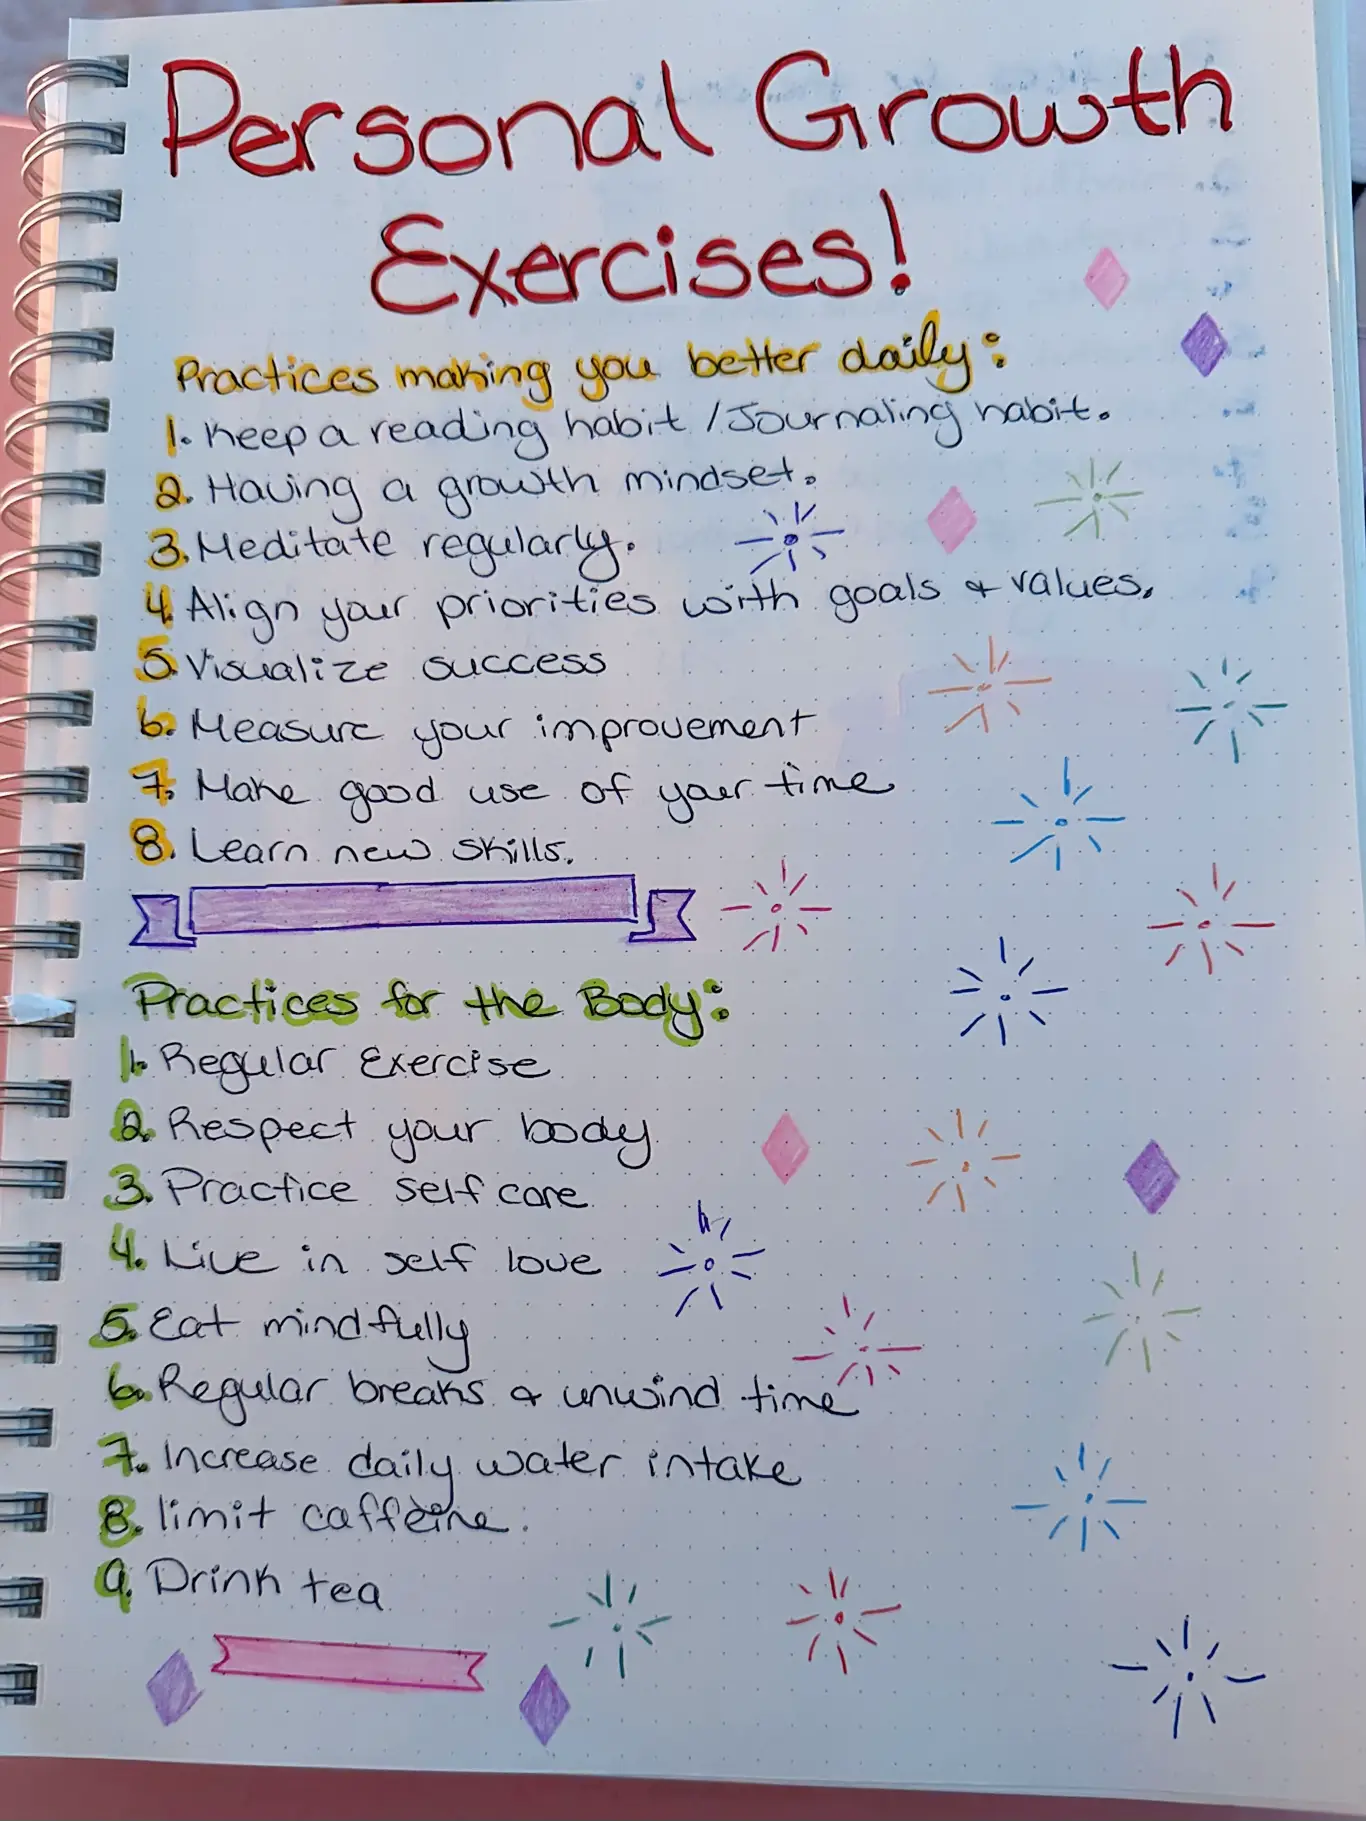 Personal Growth
Exercises!
Practices making you better daily:
1. Keep a reading habit / Journaling habit.
2. Having a growth mindset.
3. Meditate regularly.
4. Align your priorities with goals & values.
5. Visualize success
6. Measure your improvement
7. Make good use of your time
8. Learn new skills.
Practices for the Body:
1. Regular Exercise
2. Respect your body
3. Practice self care
4. Live in self love
5. Eat mindfully
6. Regular breaks & unwind time
7. Increase daily water intake
8. limit caffeine.
9. Drink tea